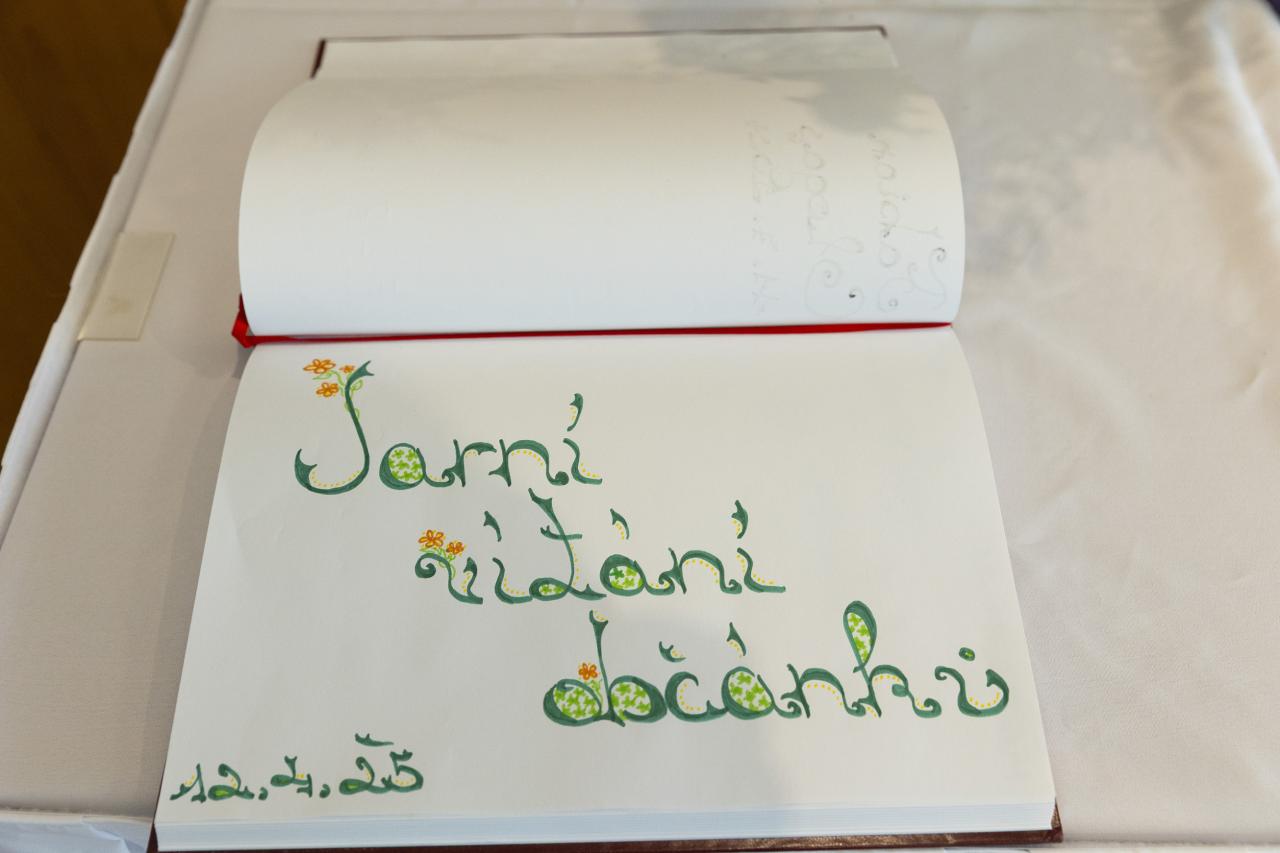 Jarní
vítání
občánků
12. 4. 25